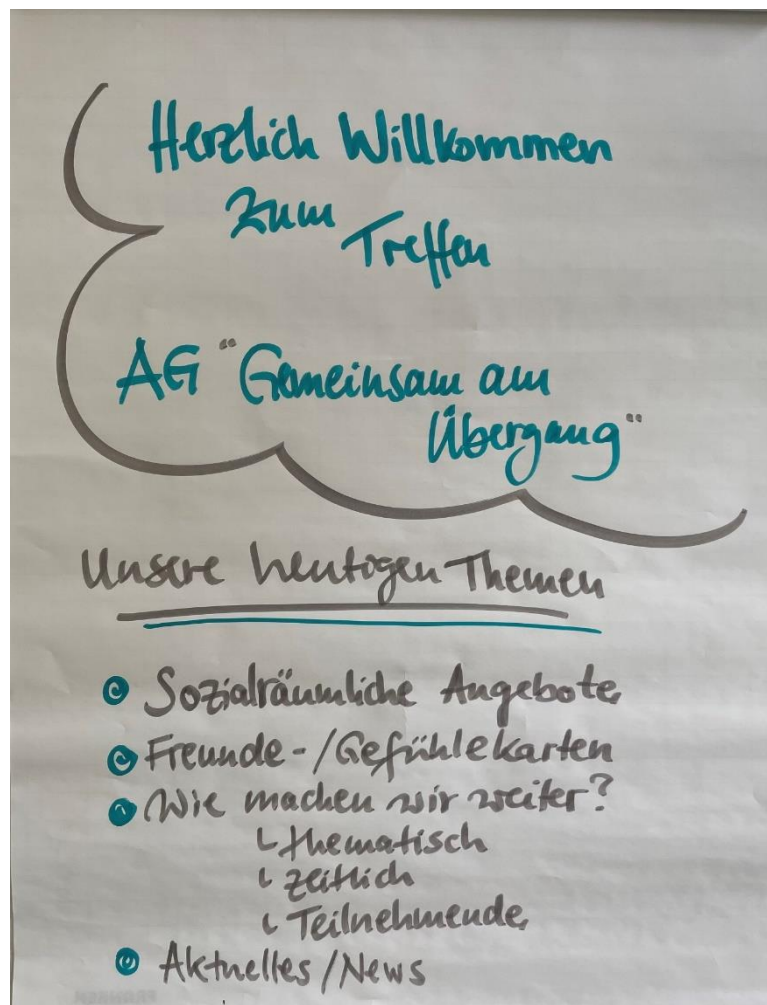 Herzlich Willkommen
zum
Treffen
AG "Gemeinsam am
Übergang"
Unsere heutigen Themen
Sozialräumliche Angebote
Freunde-/Gefühlekarten
Wie machen wir weiter?
thematisch
zeitlich
Teilnehmende
Aktuelles/News